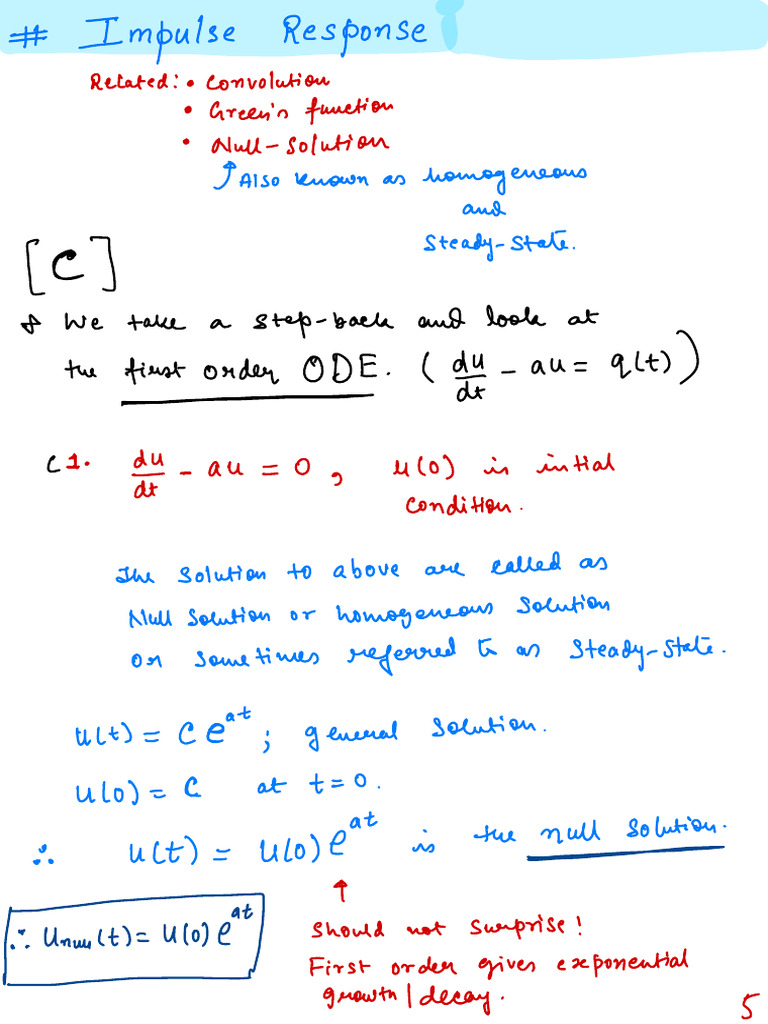 # Impulse Response
Related: • Convolution
• Green's function
• Null-Solution
↑ Also known as homogeneous
and
Steady-State.
[C]
We take a step-back and look at
the first order ODE. (du/dt - au = q(t))
C1. du/dt - au = 0, u(0) is initial
condition.
The solution to above are called as
Null solution or homogeneous solution
or sometimes referred to as steady-state.
u(t) = C e^{at}; general solution.
u(0) = C at t=0.
∴ u(t) = u(0) e^{at} is the null solution.
↑
∴ u_{null}(t) = u(0) e^{at}
Should not surprise!
First order gives exponential
growth/decay.
5